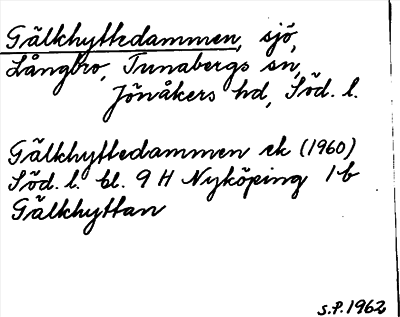 Gälkhyttedammen, sjö,
Långbro, Tunabergs sn,
Jönåkers hd, Söd. l.
Gälkhyttedammen ek (1960)
Söd. l. bl. 9 H Nyköping 1b
Gälkhyttan
S.P. 1962